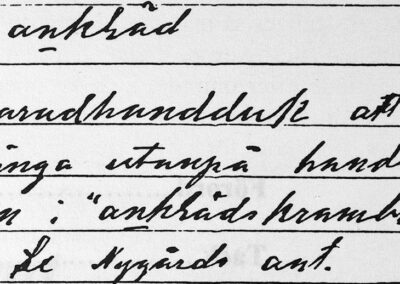 ankhåd
aradhandduk att
änga utanpå hand
n i "ankhådskramb
Se Nygårds ant.